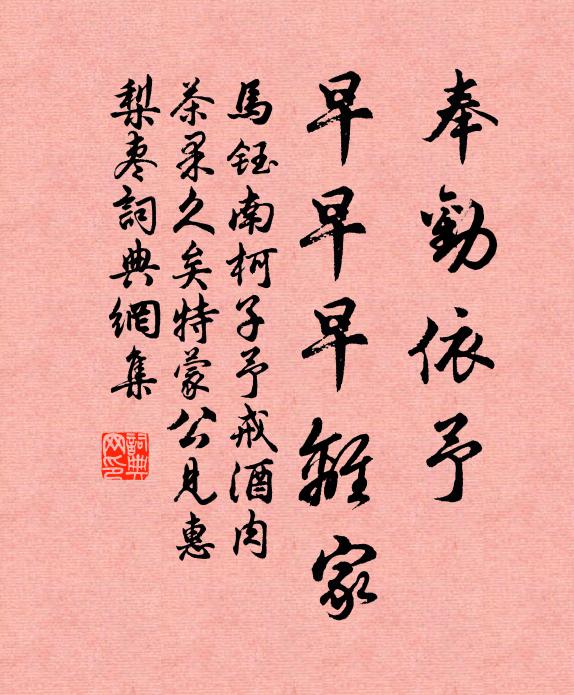 奉勸依予
早早早離家
馬鈺南柯子予戒酒肉
茶果久矣特蒙公見惠
梨棗詞典網集
詞典
网印